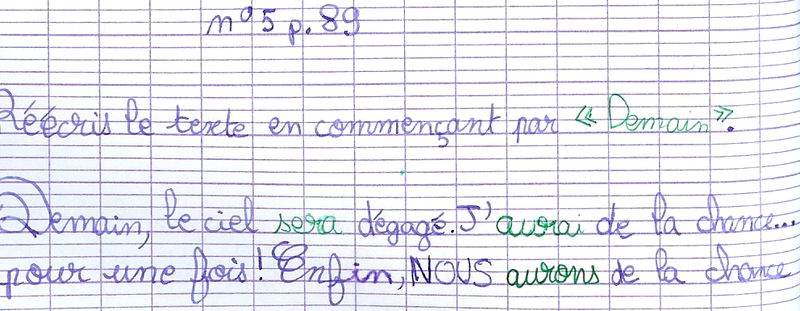 n° 5 p. 89
Réécris le texte en commençant par « Demain ».
Demain, le ciel sera dégagé. J'aurai de la chance...
pour une fois ! Enfin, NOUS aurons de la chance